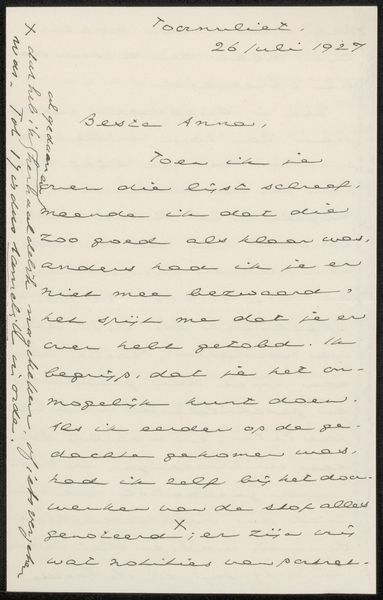 Toornvliet,
26 Juli 1927
Beste Anna,
Toen ik je
over die lijst schreef,
meende ik dat die
zoo goed als klaar was,
anders had ik je er
niet mee bezwaard,
het spijt me dat je er
over hebt getobd. Ik
begrijp, dat je het on-
mogelijk kunt doen.
Als ik eerder op de ge-
dachte gekomen was,
had ik zelf bij het door-
werken van de stof alles
genoteerd X; er zijn vrij
wat notities van portret-
X dus heb ik nagekeken, of iets vergeten
was. Tot 17 is dus in orde.